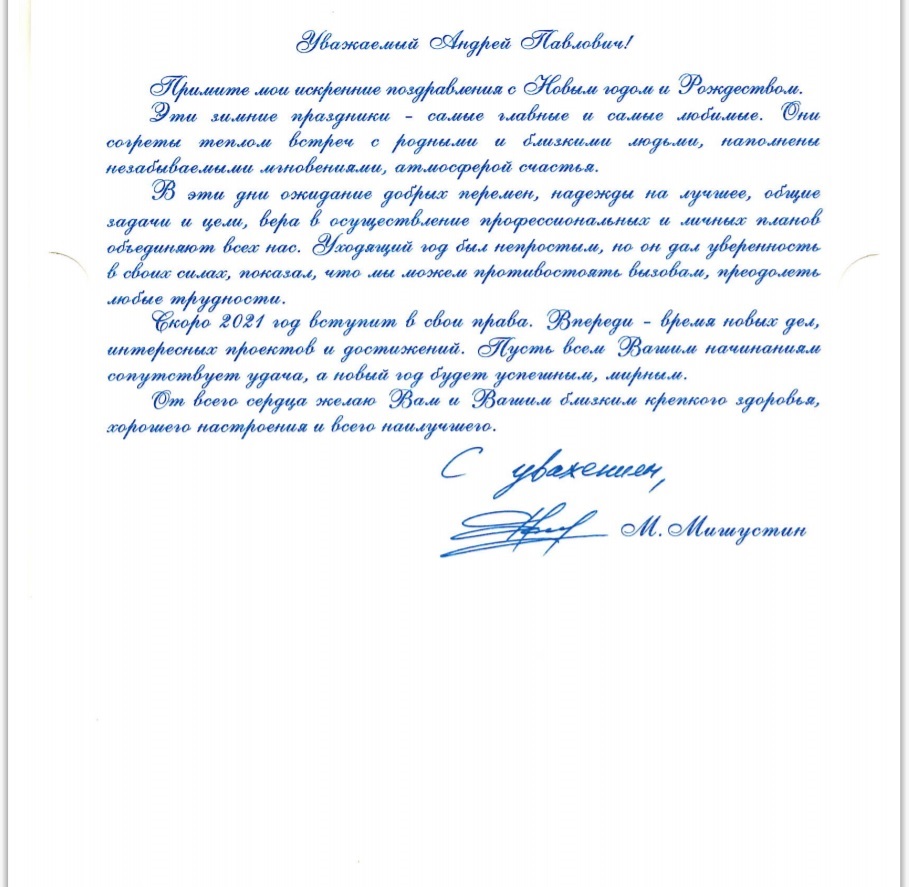 Уважаемый Андрей Павлович!
Примите мои искренние поздравления с Новым годом и Рождеством.
Эти зимние праздники - самые главные и самые любимые. Они
согреты теплом встреч с родными и близкими людьми, наполнены
незабываемыми мгновениями, атмосферой счастья.
В эти дни ожидание добрых перемен, надежды на лучшее, общие
задачи и цели, вера в осуществление профессиональных и личных планов
объединяют всех нас. Уходящий год был непростым, но он дал уверенность
в своих силах, показал, что мы можем противостоять вызовам, преодолеть
любые трудности.
Скоро 2021 год вступит в свои права. Впереди - время новых дел,
интересных проектов и достижений. Пусть всем Вашим начинаниям
сопутствует удача, а новый год будет успешным, мирным.
От всего сердца желаю Вам и Вашим близким крепкого здоровья,
хорошего настроения и всего наилучшего.
С уважением,
М. Мишустин